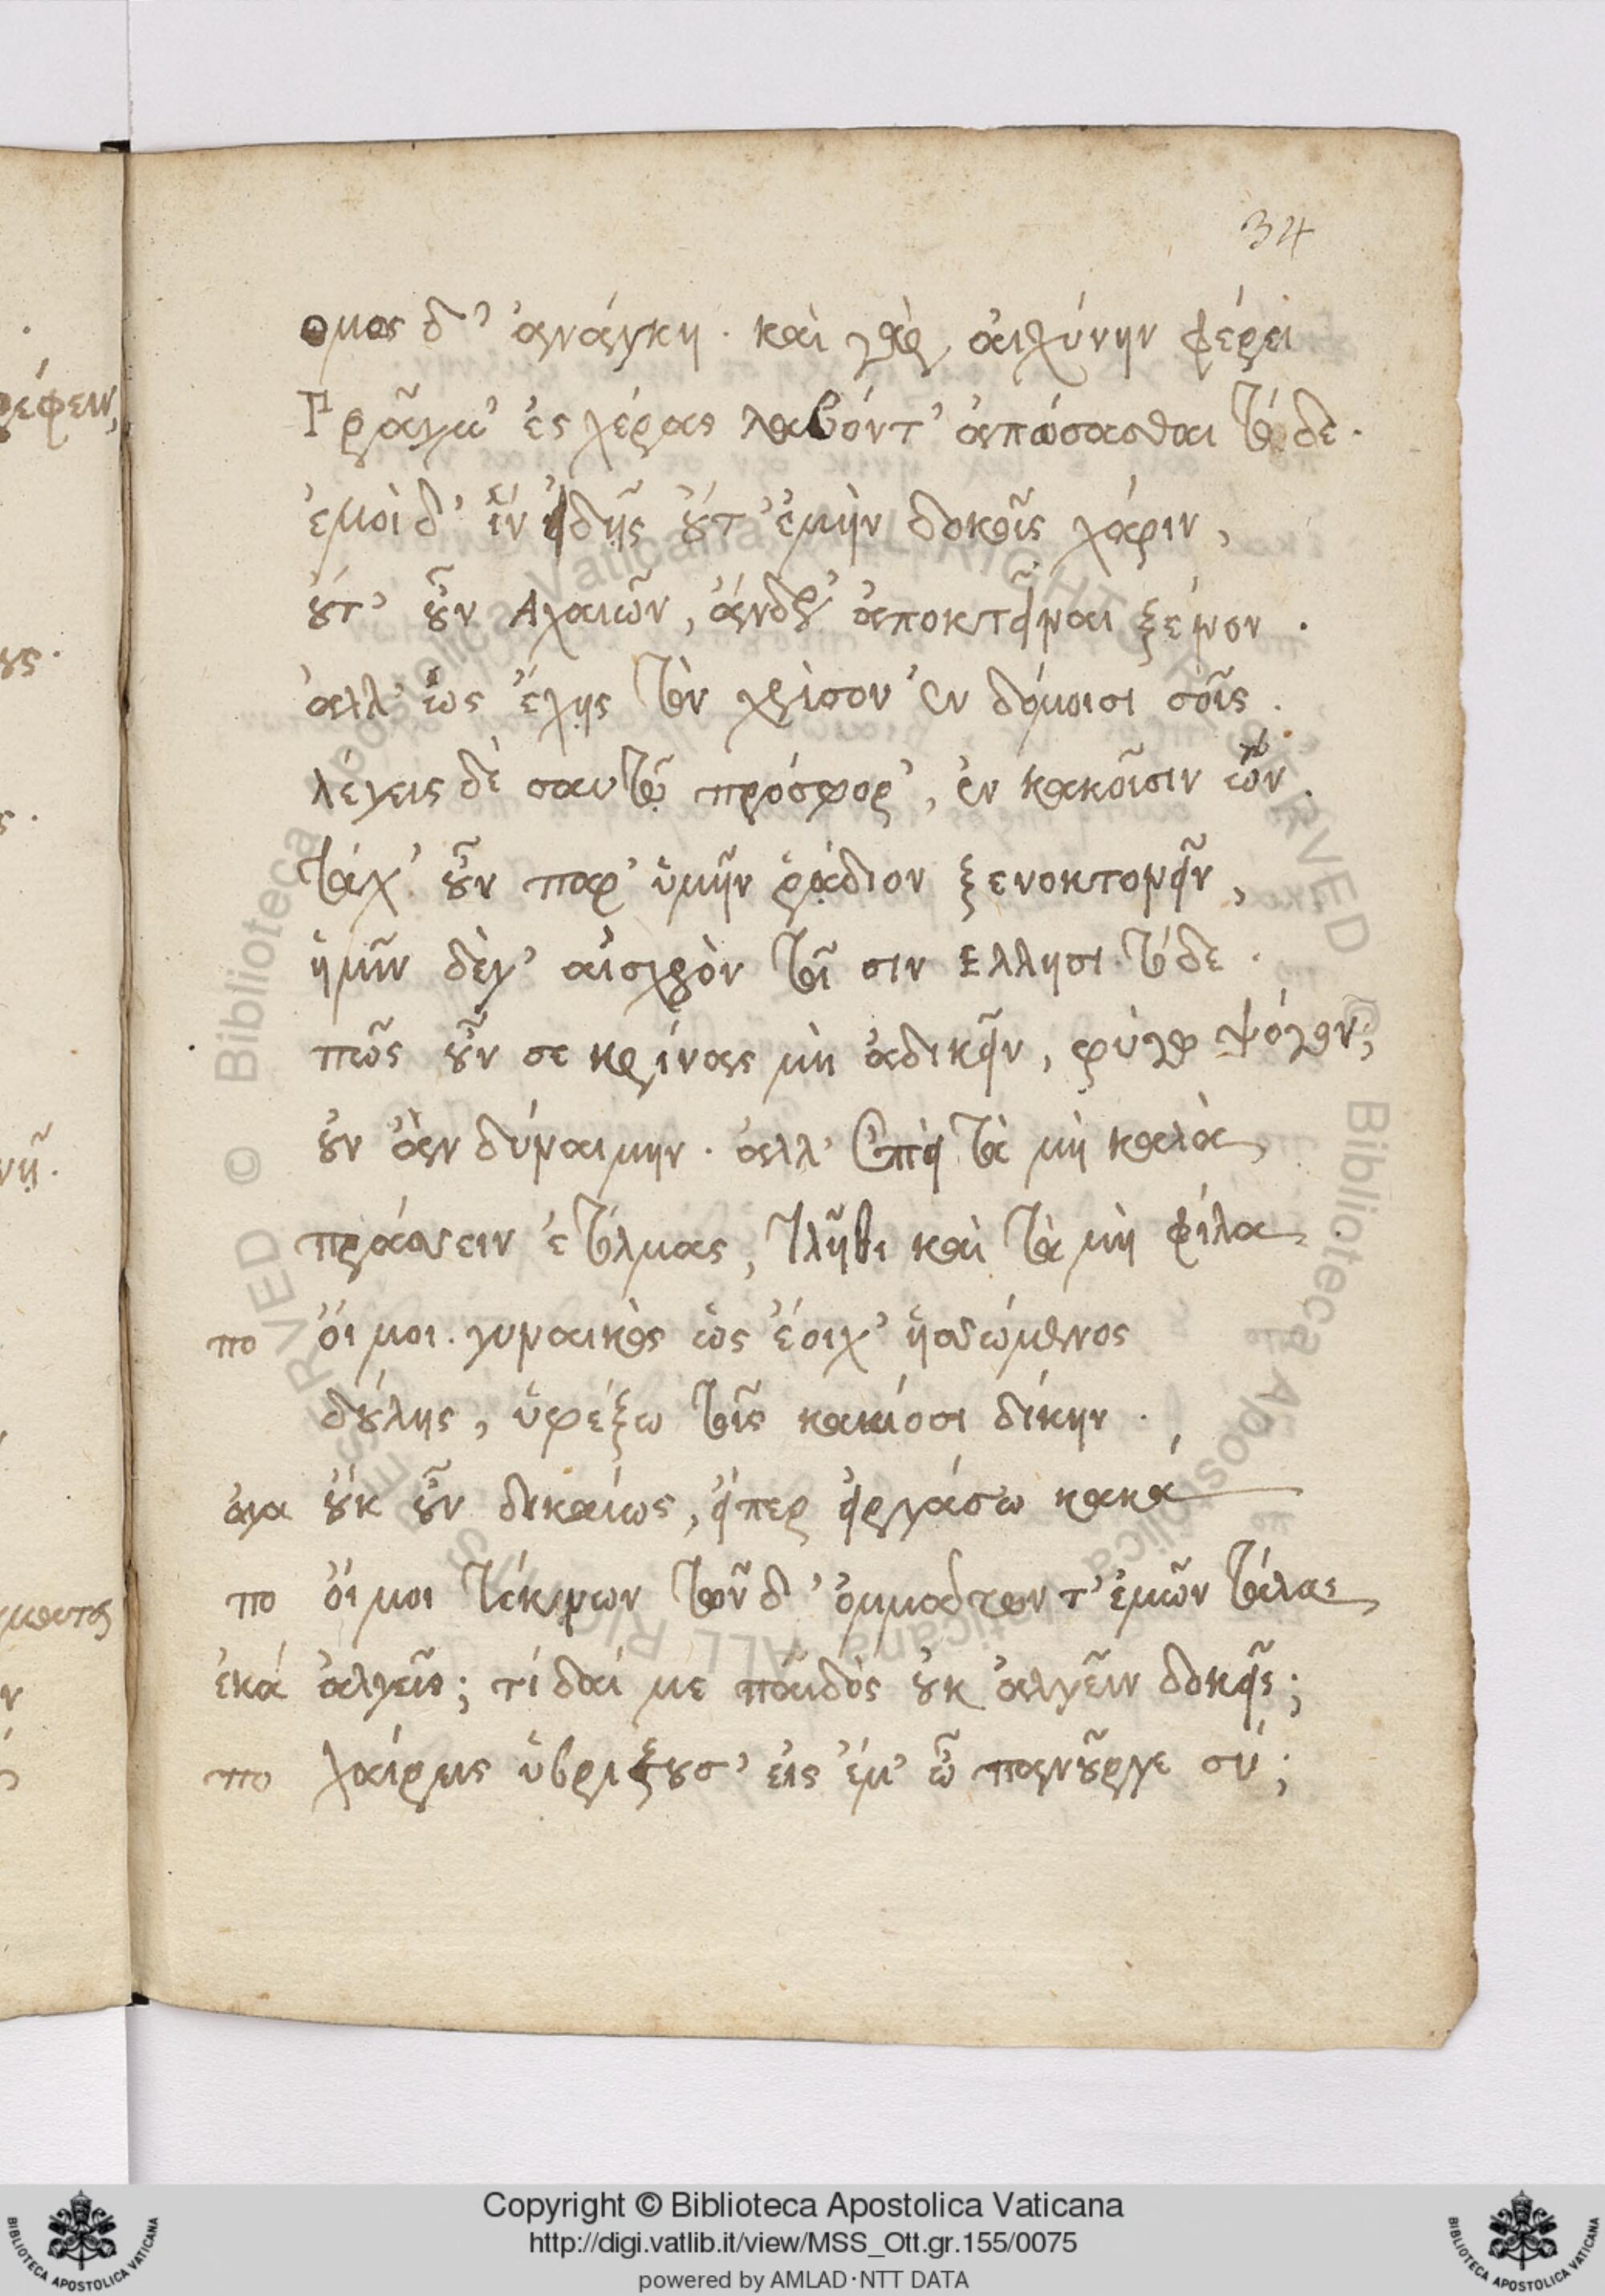 34
ομος δ' ἀνάγκη. καὶ γὰρ αἰχύνην φέρει
Πρᾶγμ' ἐς χέρας λαβόντ' ἀπώσασθαι τόδε.
ἐμοὶ δ' ἵν ἠδῆς οὔτ' ἐμὴν δοκεῖς χάριν,
οὔτ' οὖν Αχαιῶν, ἄνδρ' ἀποκτεῖναι ξένον.
ἀλλ' ὡς ἔχης τὸν χρυσὸν ἐν δόμοισι σοῖς.
λέγεις δὲ σαυτῷ πρόσφορ', ἐν κακοῖσιν ὤν.
τάχ' οὖν παρ' ὑμῖν ῥᾴδιον ξενοκτονεῖν,
ἡμῖν δέγ' αἰσχρὸν τοῖσιν Ελλησι τόδε.
πῶς οὖν σε κρίνας μὴ ἀδικεῖν, φύγω ψόγον;
οὐκ ἂν δυναίμην. ἀλλ' ἐπεὶ τὰ μὴ καλὰ
πράσσειν ἐτόλμας, τλῆθι καὶ τὰ μὴ φίλα.
πο οἴμοι. γυναικὸς ὡς ἔοιχ' ἡσσώμενος
δούλης, ὑφέξω τοῖς κακίοσι δίκην.
ἀγα οὐκ οὖν δικαίως, εἴπερ εἰργάσω κακά
πο οἴμοι τέκνων τῶνδ' ὀμμάτων τ' ἐμῶν τάλας
ἑκά ἀλγεῖς; τί δαί με παιδὸς οὐκ ἀλγεῖν δοκεῖς;
πο χαίρεις ὑβρίζουσ' εἰς ἔμ' ὦ πανοῦργε σύ;
Copyright © Biblioteca Apostolica Vaticana
http://digi.vatlib.it/view/MSS_Ott.gr.155/0075
powered by AMLAD·NTT DATA